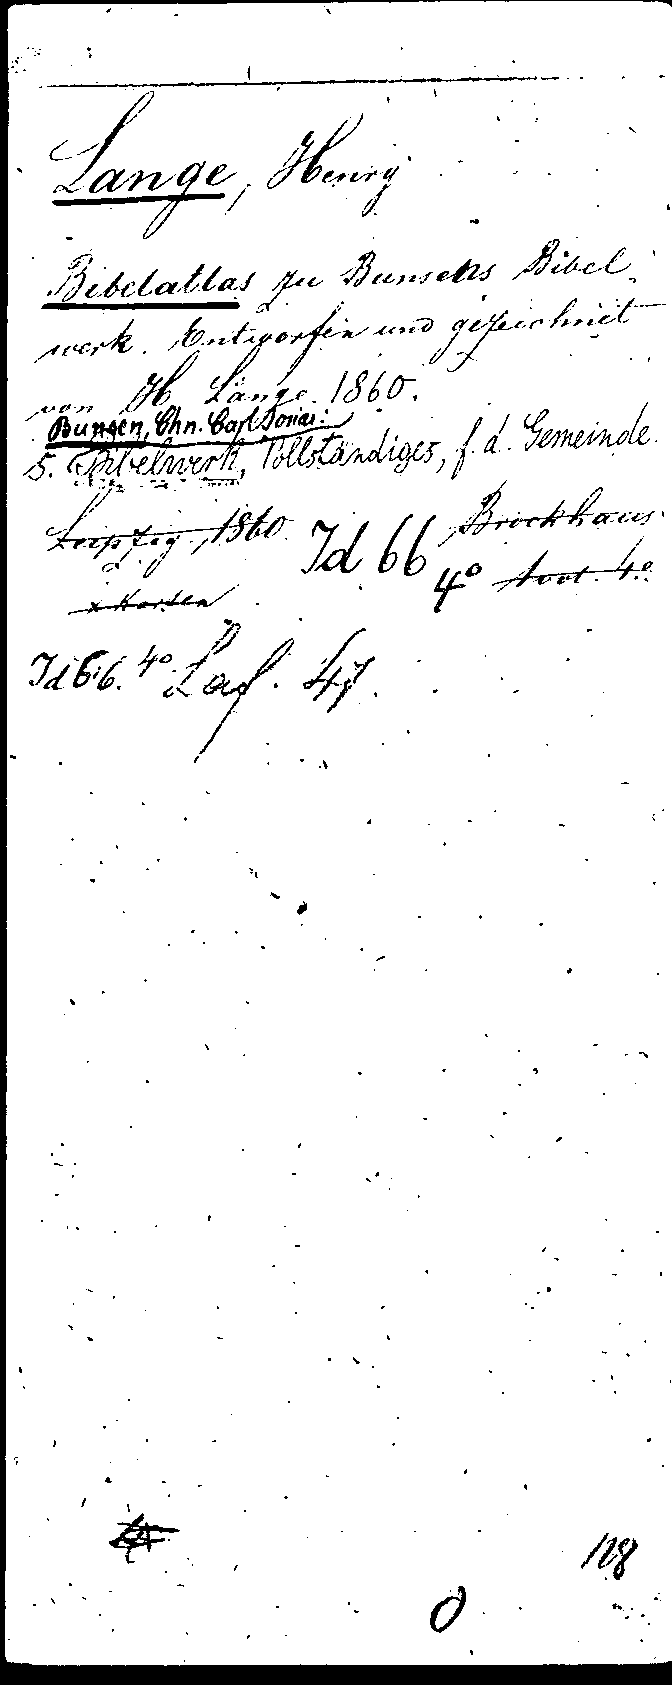 Lange, Henry
Bibelatlas zu Bunsens Bibel-
werk. Entworfen und gezeichnet
von H. Lange. 1860.
Bunsen, Chn. Carl Josias:
s. Bibelwerk, Vollständiges, f. d. Gemeinde.
Leipzig, 1860. Id 66 4° Brockhaus.
x Karten 4°
Id 66. 4° Laf. 47.
128
0